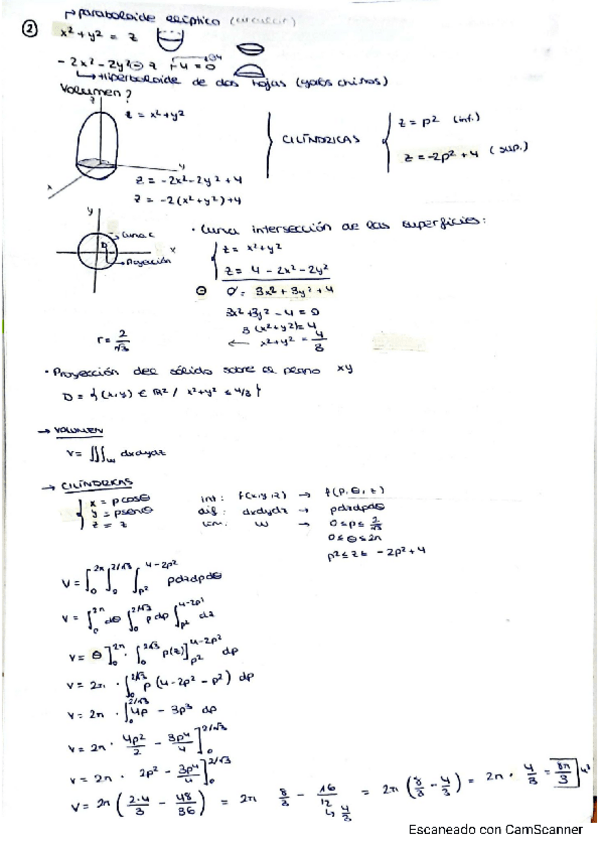 ② ↱ paraboloide elíptico (circular)
x² + y² = z
-2x² - 2y² - z + 4 = 0
↳ Hiperboloide de dos hojas (gorros chinos)
Volumen?
z
z = x² + y²
y
x
z = -2x² - 2y² + 4
z = -2(x² + y²) + 4
CILÍNDRICAS
z = ρ² (inf.)
z = -2ρ² + 4 (sup.)
y
Curva C
D
x
Proyección
r = 2/√3
· Curva intersección de las superficies:
z = x² + y²
z = 4 - 2x² - 2y²
⊖ 0 = 3x² + 3y² + 4
3x² + 3y² - 4 = 0
3(x² + y²) = 4
← x² + y² = 4/3
· Proyección del sólido sobre el plano xy
D = {(x,y) ∈ ℝ² / x² + y² ≤ 4/3}
→ VOLUMEN
V = ∭_W dxdydz
→ CILÍNDRICAS
x = ρcosθ int: f(x,y,z) → f(ρ,θ,z)
y = ρsenθ dif: dxdydz → ρdzdρdθ
z = z lím. W → 0 ≤ ρ ≤ 2/√3
0 ≤ θ ≤ 2π
ρ² ≤ z ≤ -2ρ² + 4
V = ∫₀^2π ∫₀^2/√3 ∫_ρ²^4-2ρ² ρdzdρdθ
V = ∫₀^2π dθ ∫₀^2/√3 ρ dρ ∫_ρ²^4-2ρ² dz
V = θ]₀^2π · ∫₀^2/√3 ρ(z)]_ρ²^4-2ρ² dρ
V = 2π · ∫₀^2/√3 ρ(4 - 2ρ² - ρ²) dρ
V = 2π · ∫₀^2/√3 4ρ - 3ρ³ dρ
V = 2π · 4ρ²/2 - 3ρ⁴/4]₀^2/√3
V = 2π · 2ρ² - 3ρ⁴/4]₀^2/√3
V = 2π (2·4/3 - 48/36) = 2π 8/3 - 16/12 = 2π (8/3 - 4/3) = 2π · 4/3 = 8π/3 u³
↳ 4/3
Escaneado con CamScanner